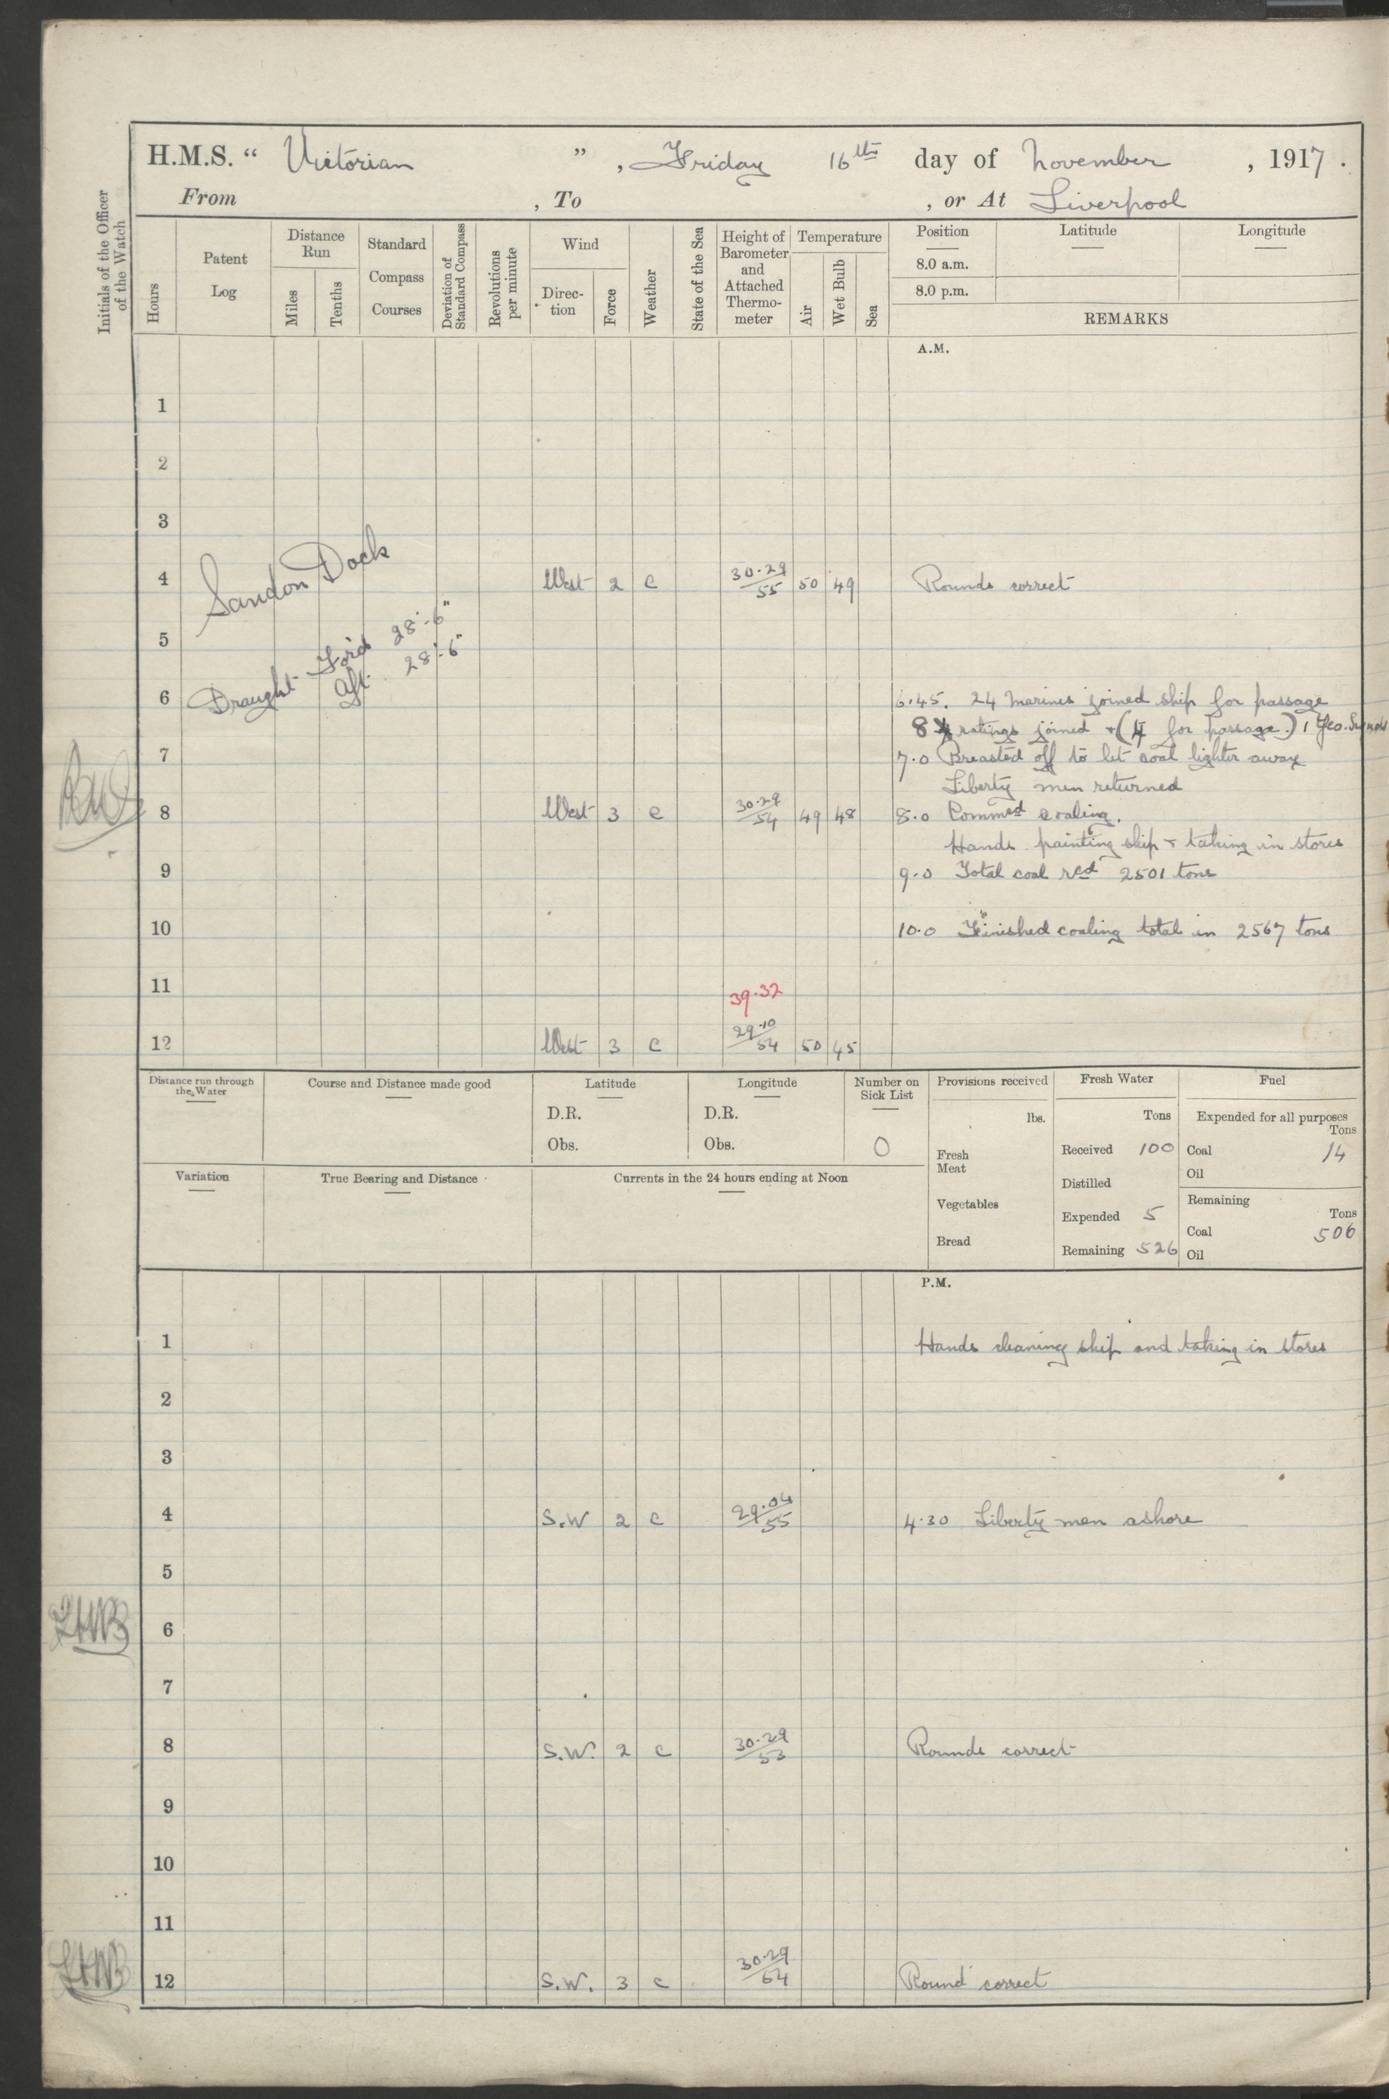 H.M.S. “ Victorian ” , Friday 16th day of November , 1917 .
From , To , or At Liverpool
Initials of the Officer of the Watch
Hours
Patent Log
Distance Run
Miles
Tenths
Standard Compass Courses
Deviation of Standard Compass
Revolutions per minute
Wind
Direc- tion
Force
Weather
State of the Sea
Height of Barometer and Attached Thermo- meter
Temperature
Air
Wet Bulb
Sea
Position Latitude Longitude
8.0 a.m.
8.0 p.m.
REMARKS
A.M.
1
2
3
Sandon Dock
4 West 2 c 30.29/55 50 49 Rounds correct
5
Draught For'd 28'-6"
Aft 28'-6"
6 6.45. 24 Marines joined ship for passage
8 ratings joined + (4 for passage.) 1 Yeo. Signals
7 7.0 Breasted off to let coal lighter away
Liberty men returned
8 West 3 c 30.29/54 49 48 8.0 Commed coaling.
Hands painting ship + taking in stores
9 9.0 Total coal recd 2501 tons
10 10.0 Finished coaling total in 2567 tons
11
39.32
12 West 3 c 29.10/54 50 45
Distance run through the Water Course and Distance made good Latitude Longitude Number on Sick List Provisions received Fresh Water Fuel
D.R. D.R. lbs. Tons Expended for all purposes Tons
Obs. Obs. 0 Fresh Meat Received 100 Coal 14
Oil
Variation True Bearing and Distance Currents in the 24 hours ending at Noon
Distilled
Vegetables Remaining Tons
Expended 5 Coal 506
Bread Remaining 526 Oil
P.M.
1 Hands cleaning ship and taking in stores
2
3
4 S.W 2 c 29.04/55 4.30 Liberty men ashore
5
6
7
8 S.W. 2 c 30.29/53 Rounds correct
9
10
11
12 S.W. 3 c 30.29/54 Round correct